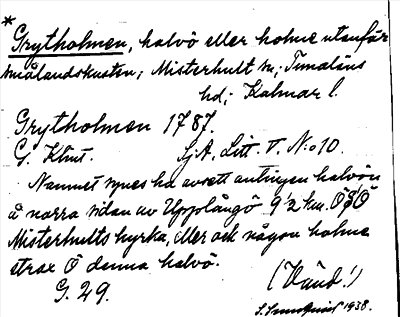 *
Grytholmen, halvö eller holme utanför
smålandskusten; Misterhult sn; Tunaläns
hd; Kalmar l.
Grytholmen 1787.
G. Klint. SjA, Litt. T. N:o 10.
Namnet synes ha avsett antingen halvön
å norra sidan av Upplångö 9 1/2 km. ÖSÖ
Misterhults kyrka, eller ock någon holme
strax Ö denna halvö.
G. 29. (Vänd!)
1938.